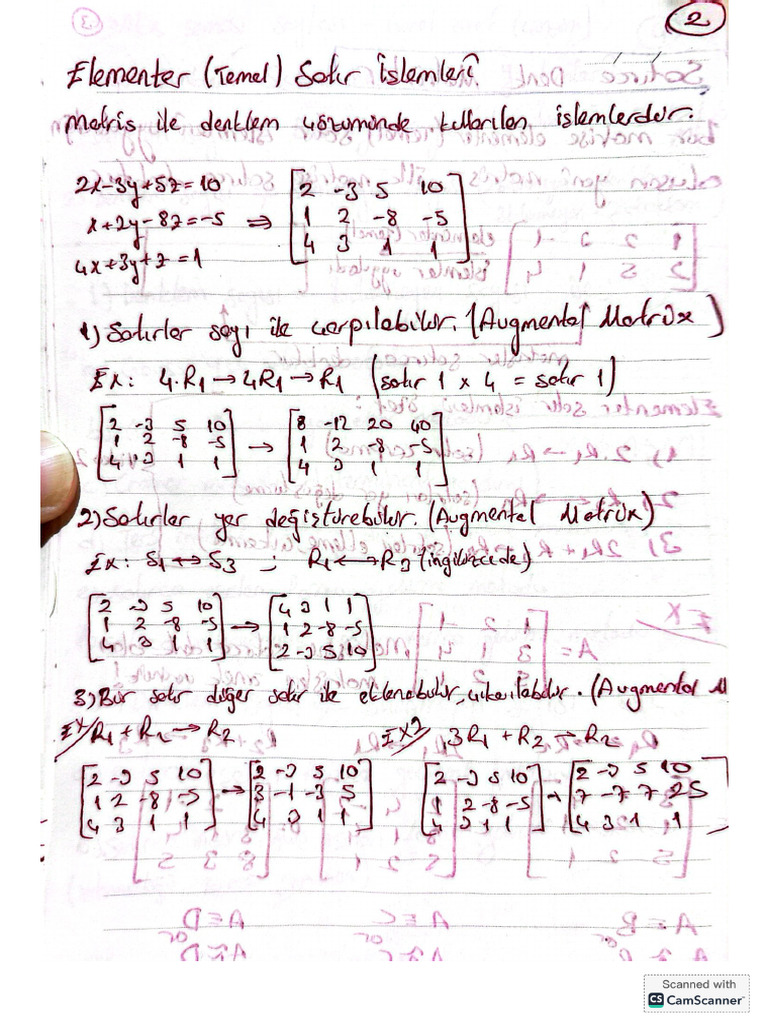 2
Elementer (Temel) Satır İşlemleri
Matris ile denklem çözümünde kullanılan işlemlerdir.
2x-3y+5z=10
x+2y-8z=-5 ⇒ [2 -3 5 10
1 2 -8 -5
4x+3y+z=1 4 3 1 1]
1) Satırlar sayı ile çarpılabilir. (Augmental Matrix)
Ex: 4.R1 → 4R1 → R1 (satır 1 x 4 = satır 1)
[2 -3 5 10 [8 -12 20 40
1 2 -8 -5 → 1 2 -8 -5
4 3 1 1] 4 3 1 1]
2) Satırlar yer değiştirebilir. (Augmental Matrix)
Ex: S1 ↔ S3 ; R1 ↔ R3 (ingilizcede)
[2 -3 5 10 [4 3 1 1
1 2 -8 -5 → 1 2 -8 -5
4 3 1 1] 2 -3 5 10]
3) Bir satır diğer satır ile eklenebilir, çıkarılabilir. (Augmental M
Ex/ R1 + R2 → R2 Ex2/ 3R1 + R2 → R2
[2 -3 5 10 [2 -3 5 10 [2 -3 5 10 [2 -3 5 10
1 2 -8 -5 → 3 -1 -3 5 1 2 -8 -5 → 7 -7 7 25
4 3 1 1] 4 3 1 1] 4 3 1 1] 4 3 1 1]
Scanned with
CS CamScanner